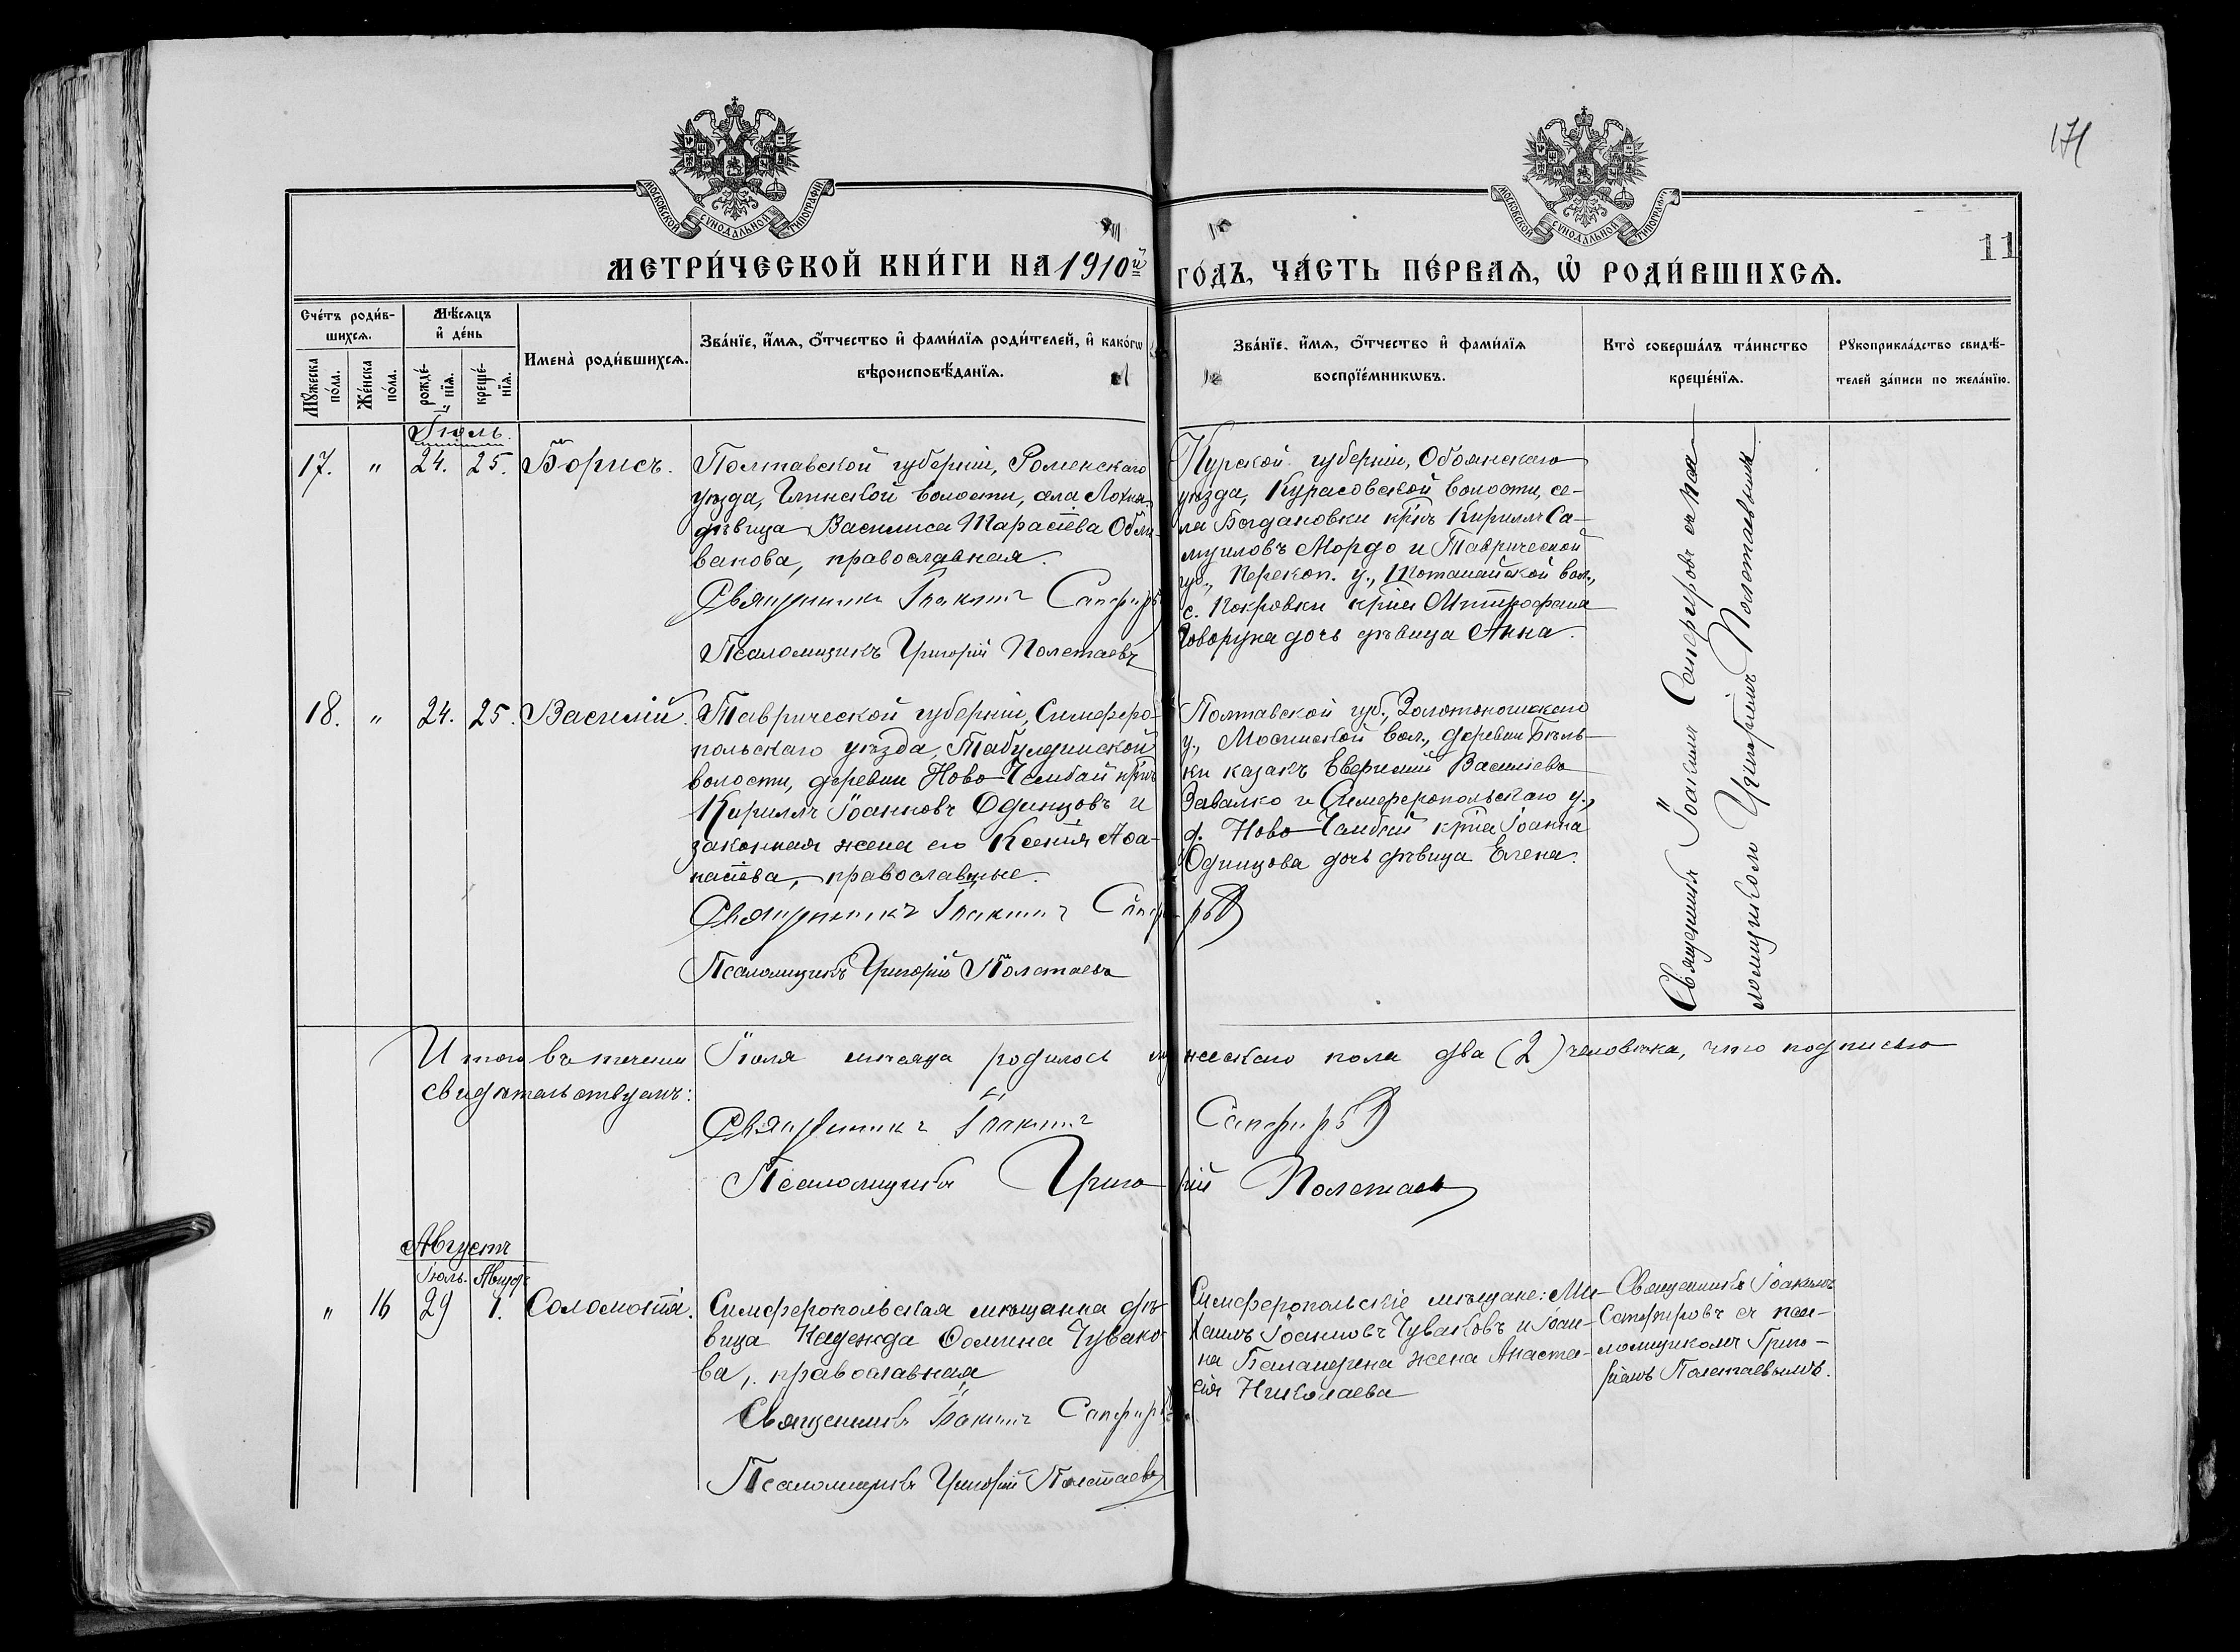 171
МОСКОВСКОЙ СѴНОДАЛЬНОЙ ТИПОГРАФІИ
МОСКОВСКОЙ СѴНОДАЛЬНОЙ ТИПОГРАФІИ
11
МЕТРИ́ЧЕСКОЙ КНИ́ГИ НА 1910й ГО́ДЪ, ЧА́СТЬ ПЕ́РВАѦ, Ѡ҆ РОДИ́ВШИХСѦ.
Сче́тъ роди́в-
шихсѧ.
Мꙋ́жеска по́ла.
Же́нска по́ла.
Мѣ́сѧцъ
и҆ де́нь
рожде́-
нїѧ.
креще́-
нїѧ.
Имена̀ роди́вшихсѧ.
Зва́нїе, и҆́мѧ, ѻ҆́тчество и҆ фами́лїѧ роди́телей, и҆ како́гѡ
вѣроисповѣ́данїѧ.
Зва́нїе, и҆́мѧ, ѻ҆́тчество и҆ фами́лїѧ
воспрїе́мникѡвъ.
Кто̀ соверша́лъ та́инство
креще́нїѧ.
Рꙋкоприкла́дство свидѣ́-
телей за́писи по жела́нїю.
Іюль.
17. " 24. 25. Борисъ.
Полтавской губерніи, Роменскаго
уѣзда, Глинской волости, села
дѣвица Василиса Тарасіева
ванова, православная.
Священникъ Іоакимъ Сапфировъ
Псаломщикъ Григорій Полетаевъ
Курской губерніи, Обоянскаго
уѣзда, Курасовской волости, се-
ла Богдановки кр҃нъ Кириллъ Са-
муиловъ Мордо и Таврической
губ., Перекоп. у., вол.,
с. Покровки кр҃на Митрофана
Говоруна дочь дѣвица Анна.
Священникъ Іоакимъ Сапфировъ съ пса-
ломщикомъ Григоріемъ Полетаевымъ.
18. " 24. 25. Василій.
Таврической губерніи, Симферо-
польскаго уѣзда, Табулдинской
волости, деревни Ново-Чембай кр҃нъ
Кириллъ Іоанновъ Одинцовъ и
законная жена его Ксенія Аѳа-
насіева, православные.
Священникъ Іоакимъ Сапфировъ
Псаломщикъ Григорій Полетаевъ
Полтавской губ., Золотоношскаго
у., вол., деревни Бѣль-
ки казакъ Евфимій Василіевъ
Завалко и Симферопольскаго у.,
д. Ново-Чембай кр҃на Іоанна
Одинцова дочь дѣвица Елена.
Итого въ теченіи Іюля мѣсяца родилось мужескаго пола два (2) человѣка, что подписью
свидѣтельствуемъ:
Священникъ Іоакимъ Сапфировъ
Псаломщикъ Григорій Полетаевъ
Августъ
Іюль. Августъ
" 16 29 1. Соломонія.
Симферопольская мѣщанка дѣ-
вица Надежда Ѳомина Чувако-
ва, православная
Священникъ Іоакимъ Сапфировъ
Псаломщикъ Григорій Полетаевъ
Симферопольскіе мѣщане: Ми-
хаилъ Іоанновъ Чуваковъ и Іоан-
на жена Анаста-
сія Николаева
Священникъ Іоакимъ
Сапфировъ съ пса-
ломщикомъ Григо-
ріемъ Полетаевымъ.